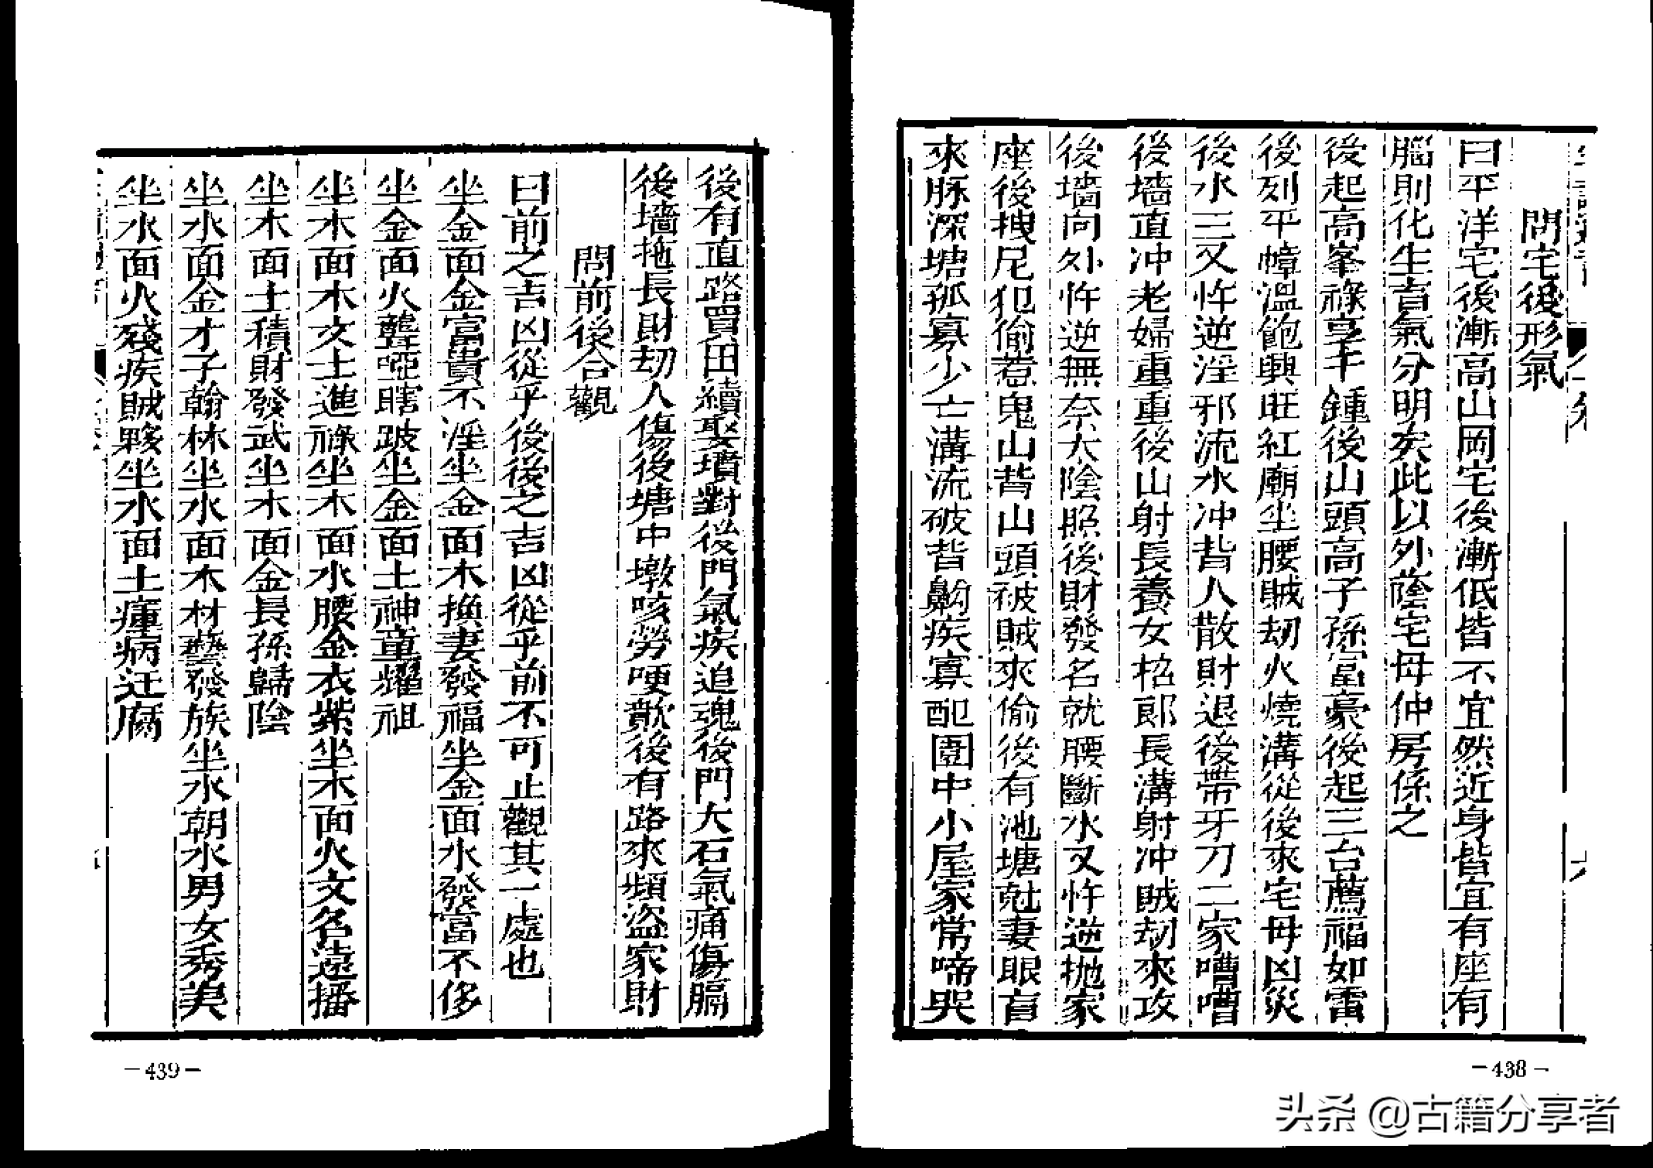 問宅後形氣
曰平洋宅後漸高山岡宅後漸低皆不宜然近身皆宜有座有
腦則化生育氣分明矣此以外蔭宅母仲房係之
後起高峯祿享千鍾後山頭高子孫富豪後起三台薦福如雷
後列平幛溫飽興旺紅廟坐腰賊刼火燒溝從後來宅母凶災
後水三叉忤逆淫邪流水冲背人散財退後帶牙刀二家嘈嘈
後墻直冲老婦重重後山射長養女招郎長溝射冲賊刼來攻
後墻向外忤逆無奈大陰照後財發名就腰斷水叉忤逆拋家
座後拽尾犯偷惹鬼山背山頭被賊來偷後有池塘尅妻眼盲
來脉深塘孤寡少亡溝流破背齁疾寡配圍中小屋家常啼哭
—438—
後有直路買田續娶墳對後門氣疾追魂後門大石氣痛傷膈
後墻拖長財刼人傷後塘中墩咳勞哽歎後有路來頻盜家財
問前後合觀
曰前之吉凶從乎後後之吉凶從乎前不可止觀其一處也
坐金面金富貴不淫坐金面木換妻發福坐金面水發富不侈
坐金面火聾啞瞎跛坐金面土神童耀祖
坐木面木文士進祿坐木面水腰金衣紫坐木面火文名遠播
坐木面土積財發武坐木面金長孫歸陰
坐水面金才子翰林坐水面木材藝發族坐水朝水男女秀美
坐水面火殘疾賊夥坐水面土瘇病迂腐
—439—
头条 @古籍分享者